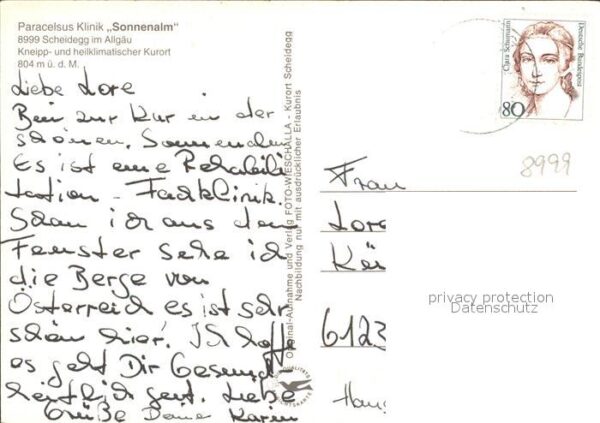 Paracelsus Klinik „Sonnenalm“
8999 Scheidegg im Allgäu
Kneipp- und heilklimatischer Kurort
804 m ü. d. M.
Liebe Lore
Bin zur Kur in der
schönen, Sonnenalm
Es ist eine Rehabili
tation - Fachklinik.
Schau ich aus dem
Fenster sehe ich
die Berge von
Österreich es ist sehr
schön hier! Ich hoffe
es geht Dir Gesund-
heitlich gut. Liebe
Grüße Deine Karin
Original-Aufnahme und Verlag FOTO-WIESCHALLA - Kurort Scheidegg
Nachbildung nur mit ausdrücklicher Erlaubnis
Clara Schumann
Deutsche Bundespost
80
8999
Frau
Lore
6123
privacy protection
Datenschutz